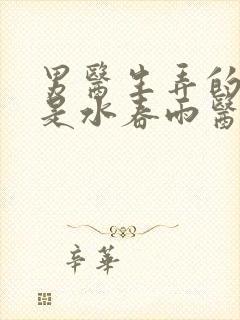 男醫生弄的
是水春雨醫
辛華